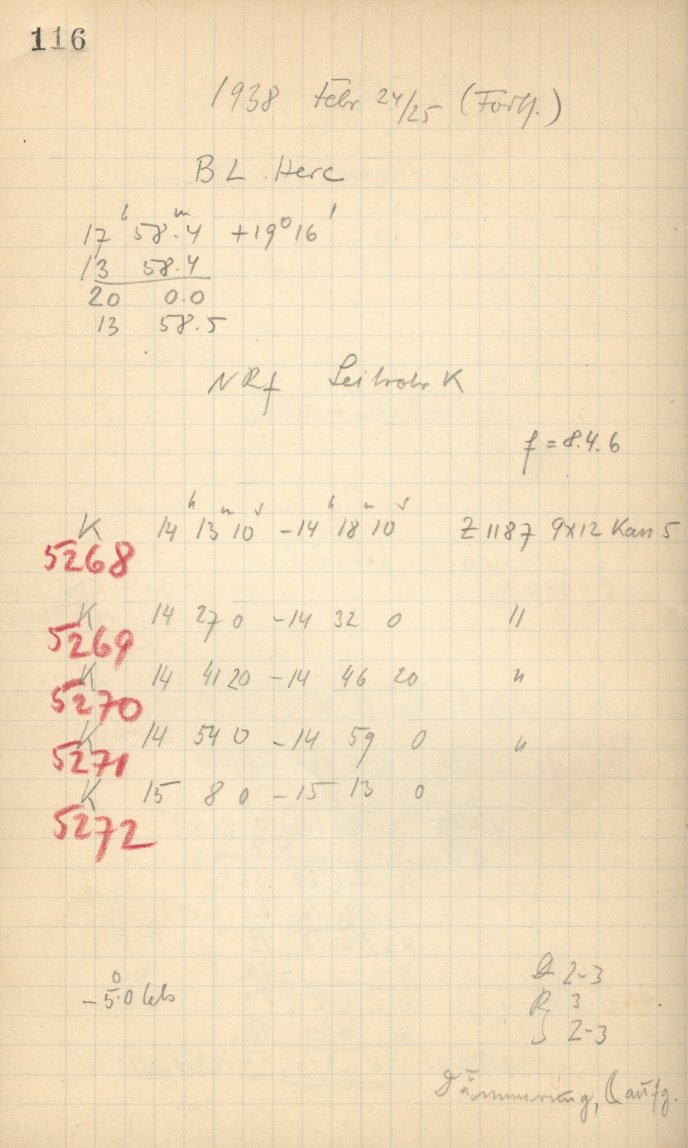 116
1938 Febr 24/25 (Forts.)
BL Herc
17ʰ 58ᵐ.4 +19° 16'
13 58.4
20 0.0
13 58.5
NRf Leitrohr K
f = 8.4.6
K 14ʰ 13ᵐ 10ˢ - 14ʰ 18ᵐ 10ˢ Z 1187 9x12 Kas 5
5268
K 14 27 0 - 14 32 0 "
5269
K 14 41 20 - 14 46 20 "
5270
K 14 54 0 - 14 59 0 "
5271
K 15 8 0 - 15 13 0
5272
2-3
-5.°0 Cels R 3
S 2-3
Dämmerung, ☾ aufg.